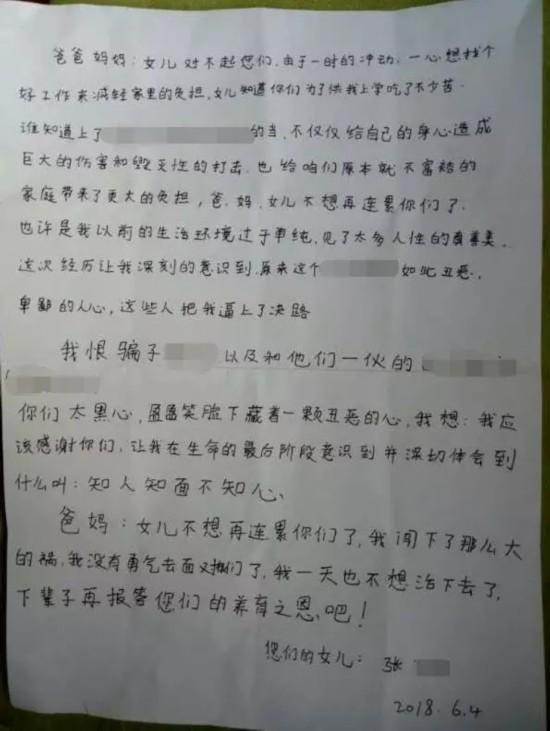 爸爸妈妈：女儿对不起您们，由于一时的冲动，一心想找个
好工作来减轻家里的负担，女儿知道你们为了供我上学吃了不少苦。
谁知道上了的当，不仅仅给自己的身心造成
巨大的伤害和毁灭性的打击，也给咱们原本就不富裕的
家庭带来了更大的负担，爸，妈，女儿不想再连累你们了。
也许是我以前的生活环境过于单纯，见了太多人性的真善美。
这次经历让我深刻的意识到，原来这个如此丑恶，
卑鄙的人心，这些人把我逼上了决路
我恨骗子以及和他们一伙的
你们太黑心，盈盈笑脸下藏着一颗丑恶的心，我想：我应
该感谢你们，让我在生命的最后阶段意识到并深切体会到
什么叫：知人知面不知心、
爸妈：女儿不想再连累你们了，我闯下了那么大
的祸，我没有勇气去面对你们了，我一天也不想活下去了，
下辈子再报答您们的养育之恩吧！
您们的女儿：张
2018.6.4